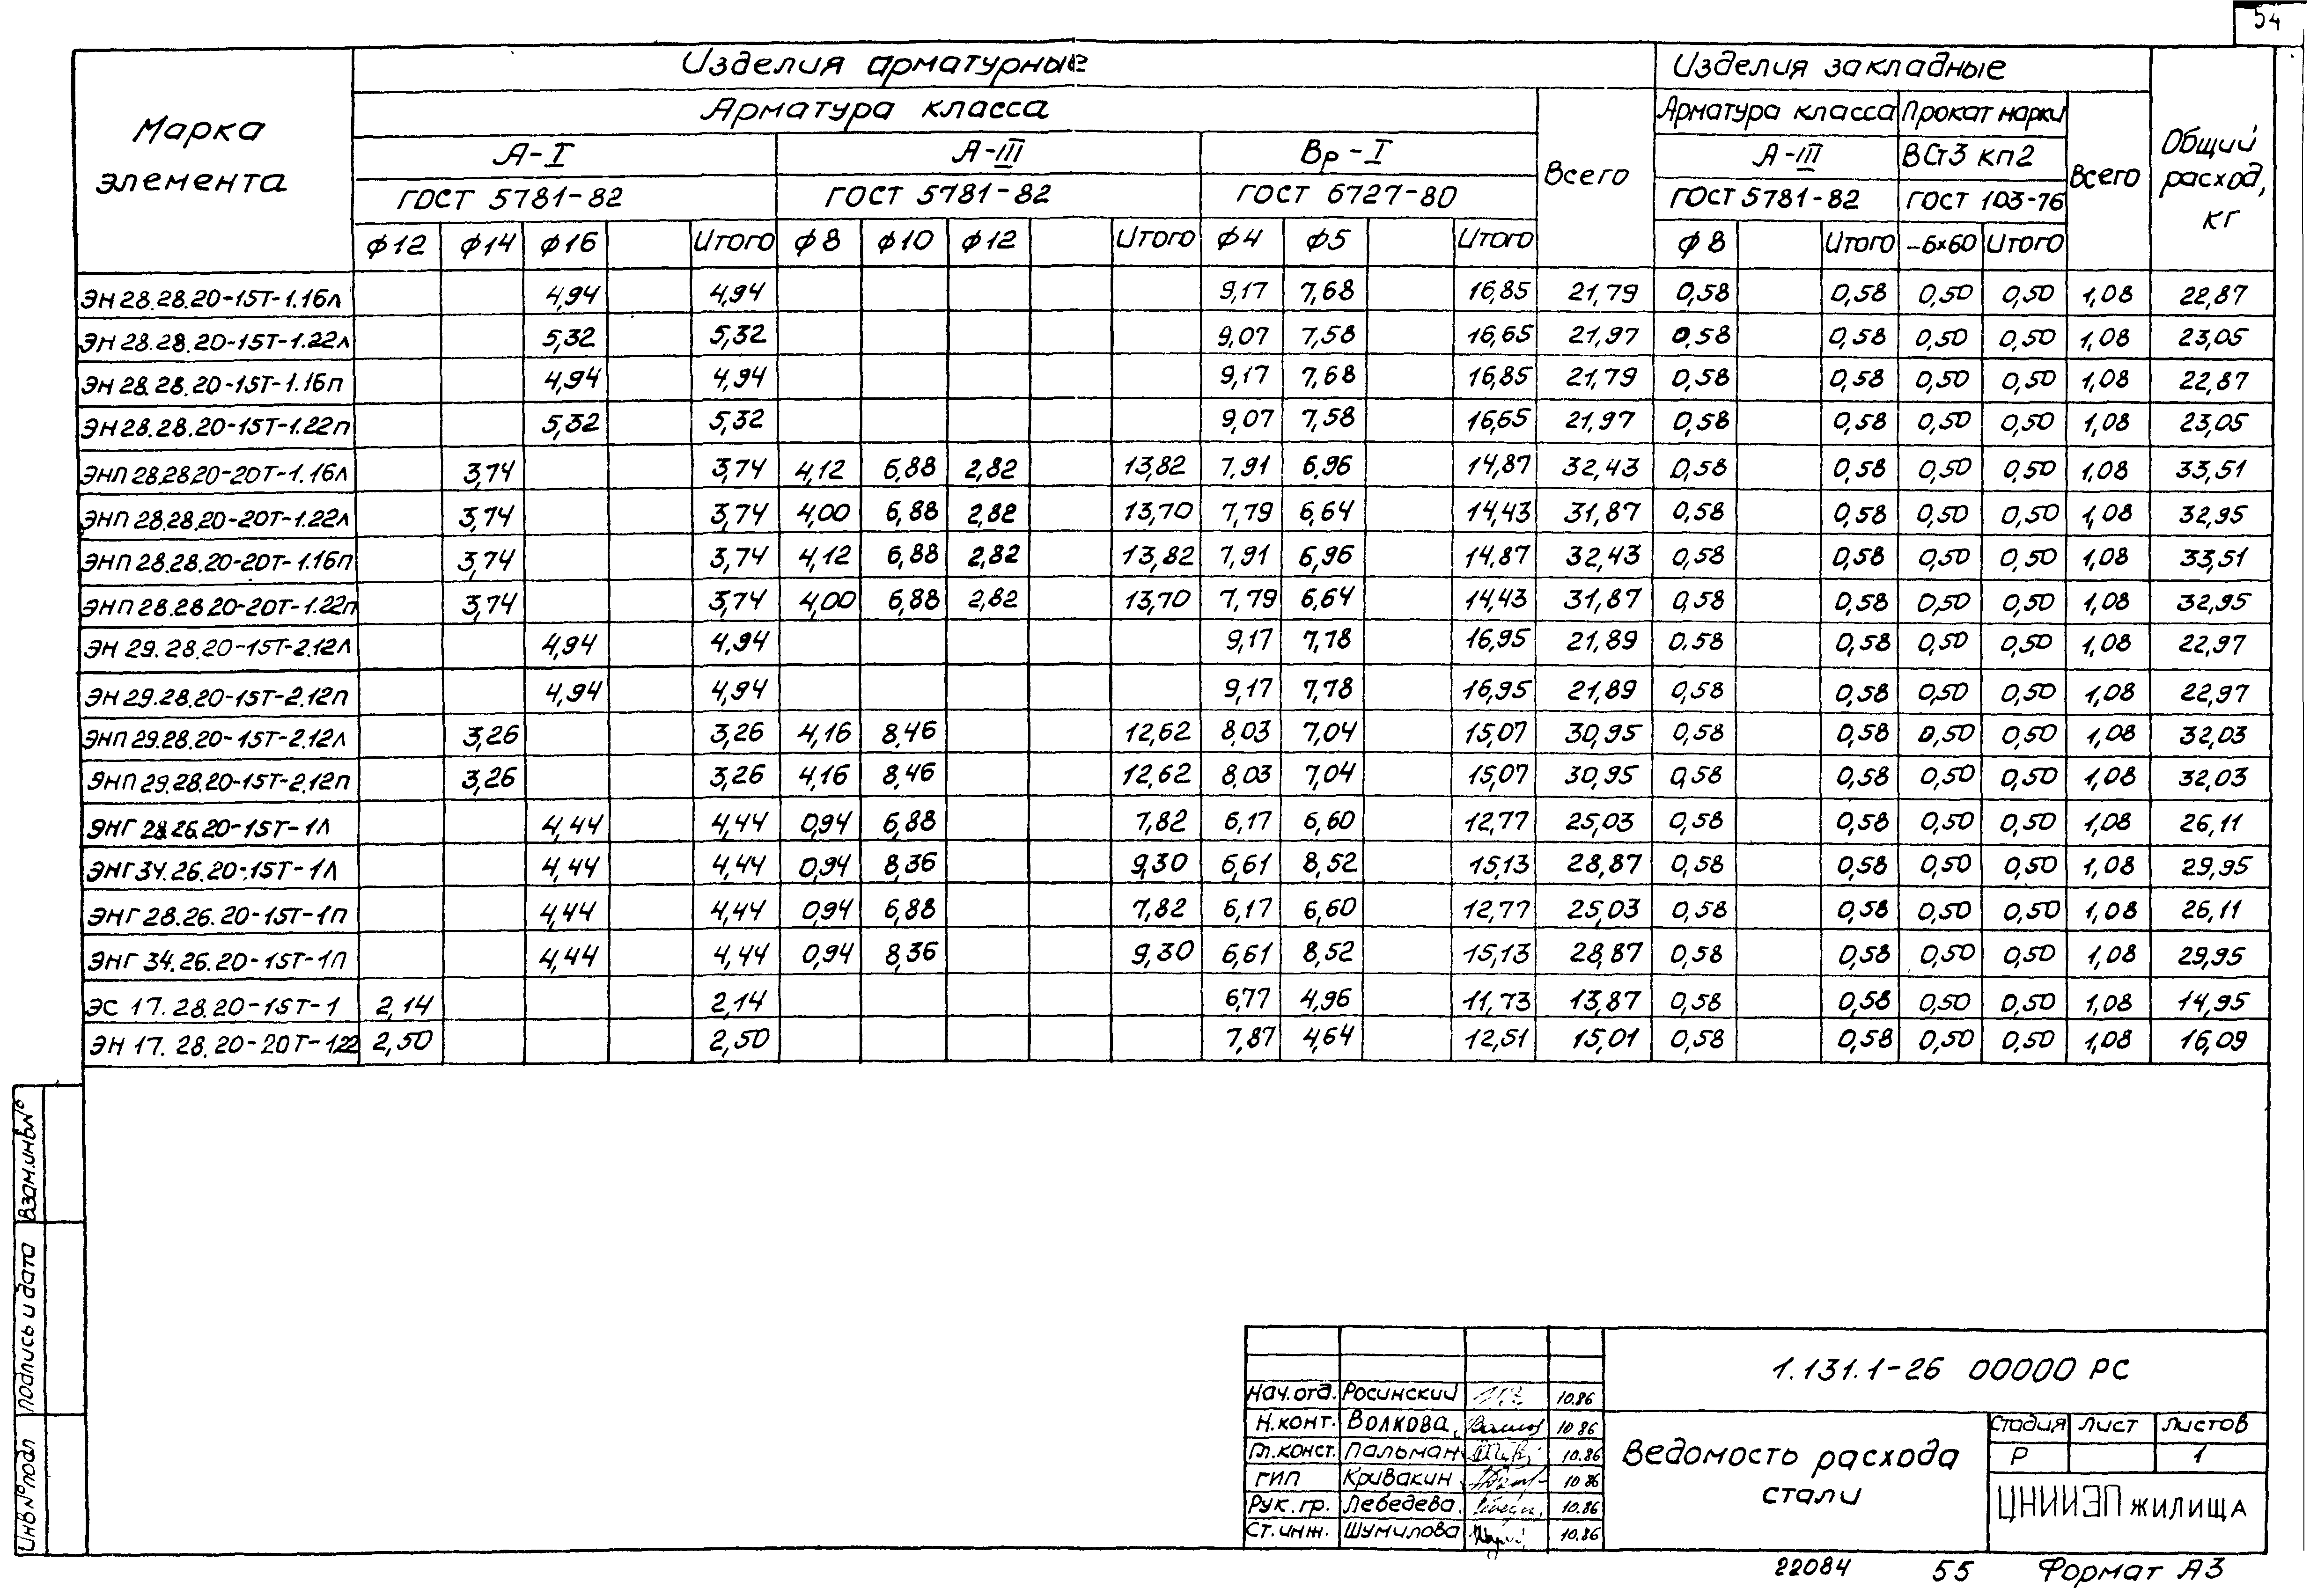 54
Изделия арматурные Изделия закладные
Марка элемента Арматура класса Всего Арматура класса Прокат марки Всего Общий расход, кг
А-I А-III Вр-I А-III ВСт3 кп2
ГОСТ 5781-82 ГОСТ 5781-82 ГОСТ 6727-80 ГОСТ 5781-82 ГОСТ 103-76
ф12 ф14 ф16 Итого ф8 ф10 ф12 Итого ф4 ф5 Итого ф8 Итого -6×60 Итого
ЭН 28.28.20-15Т-1.16л 4,94 4,94 9,17 7,68 16,85 21,79 0,58 0,58 0,50 0,50 1,08 22,87
ЭН 28.28.20-15Т-1.22л 5,32 5,32 9,07 7,58 16,65 21,97 0,58 0,58 0,50 0,50 1,08 23,05
ЭН 28.28.20-15Т-1.16п 4,94 4,94 9,17 7,68 16,85 21,79 0,58 0,58 0,50 0,50 1,08 22,87
ЭН 28.28.20-15Т-1.22п 5,32 5,32 9,07 7,58 16,65 21,97 0,58 0,58 0,50 0,50 1,08 23,05
ЭНП 28.28.20-20Т-1.16л 3,74 3,74 4,12 6,88 2,82 13,82 7,91 6,96 14,87 32,43 0,58 0,58 0,50 0,50 1,08 33,51
ЭНП 28.28.20-20Т-1.22л 3,74 3,74 4,00 6,88 2,82 13,70 7,79 6,64 14,43 31,87 0,58 0,58 0,50 0,50 1,08 32,95
ЭНП 28.28.20-20Т-1.16п 3,74 3,74 4,12 6,88 2,82 13,82 7,91 6,96 14,87 32,43 0,58 0,58 0,50 0,50 1,08 33,51
ЭНП 28.28.20-20Т-1.22п 3,74 3,74 4,00 6,88 2,82 13,70 7,79 6,64 14,43 31,87 0,58 0,58 0,50 0,50 1,08 32,95
ЭН 29.28.20-15Т-2.12л 4,94 4,94 9,17 7,78 16,95 21,89 0,58 0,58 0,50 0,50 1,08 22,97
ЭН 29.28.20-15Т-2.12п 4,94 4,94 9,17 7,78 16,95 21,89 0,58 0,58 0,50 0,50 1,08 22,97
ЭНП 29.28.20-15Т-2.12л 3,26 3,26 4,16 8,46 12,62 8,03 7,04 15,07 30,95 0,58 0,58 0,50 0,50 1,08 32,03
ЭНП 29.28.20-15Т-2.12п 3,26 3,26 4,16 8,46 12,62 8,03 7,04 15,07 30,95 0,58 0,58 0,50 0,50 1,08 32,03
ЭНГ 28.26.20-15Т-1Л 4,44 4,44 0,94 6,88 7,82 6,17 6,60 12,77 25,03 0,58 0,58 0,50 0,50 1,08 26,11
ЭНГ 34.26.20-15Т-1Л 4,44 4,44 0,94 8,36 9,30 6,61 8,52 15,13 28,87 0,58 0,58 0,50 0,50 1,08 29,95
ЭНГ 28.26.20-15Т-1п 4,44 4,44 0,94 6,88 7,82 6,17 6,60 12,77 25,03 0,58 0,58 0,50 0,50 1,08 26,11
ЭНГ 34.26.20-15Т-1П 4,44 4,44 0,94 8,36 9,30 6,61 8,52 15,13 28,87 0,58 0,58 0,50 0,50 1,08 29,95
ЭС 17.28.20-15Т-1 2,14 2,14 6,77 4,96 11,73 13,87 0,58 0,58 0,50 0,50 1,08 14,95
ЭН 17.28.20-20Т-1.22 2,50 2,50 7,87 4,64 12,51 15,01 0,58 0,58 0,50 0,50 1,08 16,09
Взам.инв№
Подпись и дата
Инв№подл
1.131.1-26 00000 РС
Нач.отд. Росинский 10.86
Н.конт. Волкова 10 86
Гл.конст. Пальман 10.86
ГИП Кривакин 10 86
Рук.гр. Лебедева 10.86
Ст.инж. Шумилова 10.86
Ведомость расхода
стали
Стадия Лист Листов
Р 1
ЦНИИЭП жилища
22084 55 Формат А3